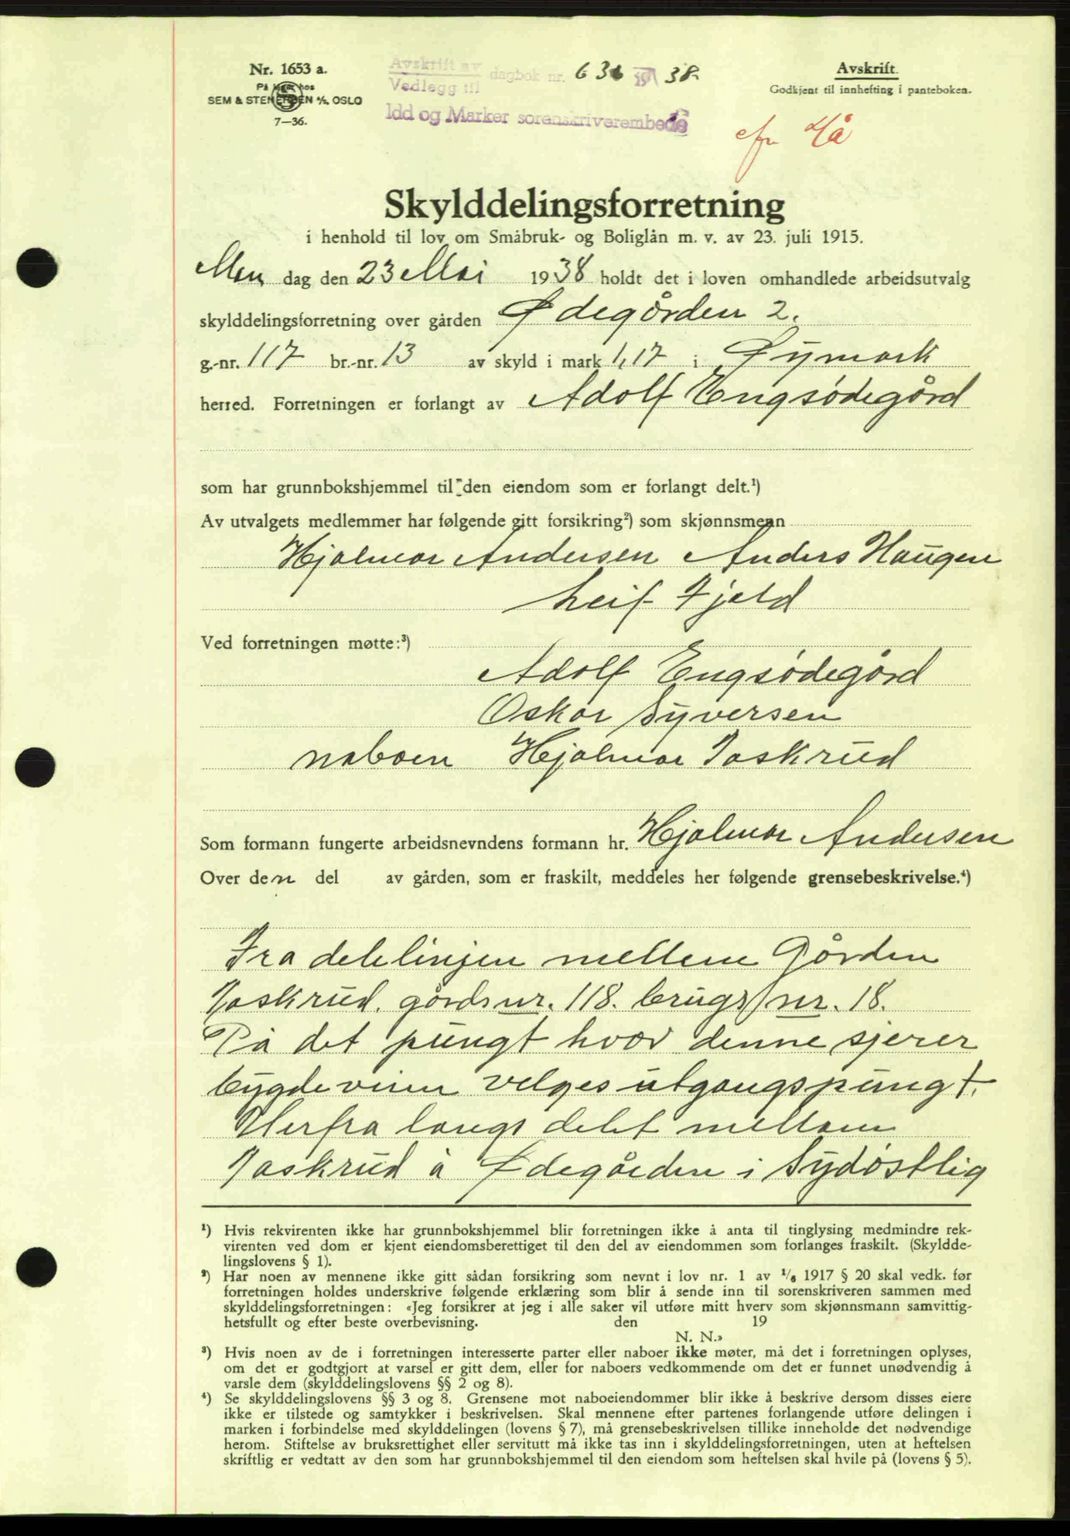 Nr. 1653 a.
SEM & STENERSEN A/S. OSLO
7—36.
Avskrift av
Vedlegg til dagbok nr. 636 19/38.
Idd og Marker sorenskriverembede
Avskrift.
Godkjent til innhefting i panteboken.
Skylddelingsforretning
i henhold til lov om Småbruk- og Boliglån m. v. av 23. juli 1915.
Man dag den 23 Mai 1938 holdt det i loven omhandlede arbeidsutvalg
skylddelingsforretning over gården Ødegården 2.
g.-nr. 117 br.-nr. 13 av skyld i mark 1,17 i Øymark
herred. Forretningen er forlangt av Adolf Engsødegård
som har grunnbokshjemmel til den eiendom som er forlangt delt.¹)
Av utvalgets medlemmer har følgende gitt forsikring²) som skjønnsmenn
Hjalmar Andersen Anders Haugen
Leif Fjeld
Ved forretningen møtte:³)
Adolf Engsødegård
Oskar Syversen
naboen Hjalmar Taskrud
Som formann fungerte arbeidsnevndens formann hr. Hjalmar Andersen
Over den del av gården, som er fraskilt, meddeles her følgende grensebeskrivelse.⁴)
Fra delelinjen mellem Gården
Taskrud. gårdsnr. 118. brugs nr. 18.
På det pungt hvor denne sjerer
bygdeveien velges utgangspungt.
Herfra langs delet mellam
Taskrud å Ødegården i Sydøstlig
¹) Hvis rekvirenten ikke har grunnbokshjemmel blir forretningen ikke å anta til tinglysing medmindre rek-
virenten ved dom er kjent eiendomsberettiget til den del av eiendommen som forlanges fraskilt. (Skyldde-
lingslovens § 1).
²) Har noen av mennene ikke gitt sådan forsikring som nevnt i lov nr. 1 av 1/6 1917 § 20 skal vedk. før
forretningen holdes underskrive følgende erklæring som blir å sende inn til sorenskriveren sammen med
skylddelingsforretningen: «Jeg forsikrer at jeg i alle saker vil utføre mitt hverv som skjønnsmann samvittig-
hetsfullt og efter beste overbevisning. den 19
N. N.»
³) Hvis noen av de i forretningen interesserte parter eller naboer ikke møter, må det i forretningen oplyses,
om det er godtgjort at varsel er gitt dem, eller for naboers vedkommende om det er funnet unødvendig å
varsle dem (skylddelingslovens §§ 2 og 8).
⁴) Se skylddelingslovens §§ 3 og 8. Grensene mot naboeiendommer blir ikke å beskrive dersom disses eiere
ikke er tilstede og samtykker i beskrivelsen. Skal mennene efter partenes forlangende utføre delingen i
marken i forbindelse med skylddelingen (lovens § 7), må grensebeskrivelsen tillike inneholde det nødvendige
herom. Stiftelse av bruksrettighet eller servitutt må ikke tas inn i skylddelingsforretningen, uten at heftelsen
skriftlig er vedtatt av den som har grunnbokshjemmel til den eiendom som heftelsen skal hvile på (lovens § 5).